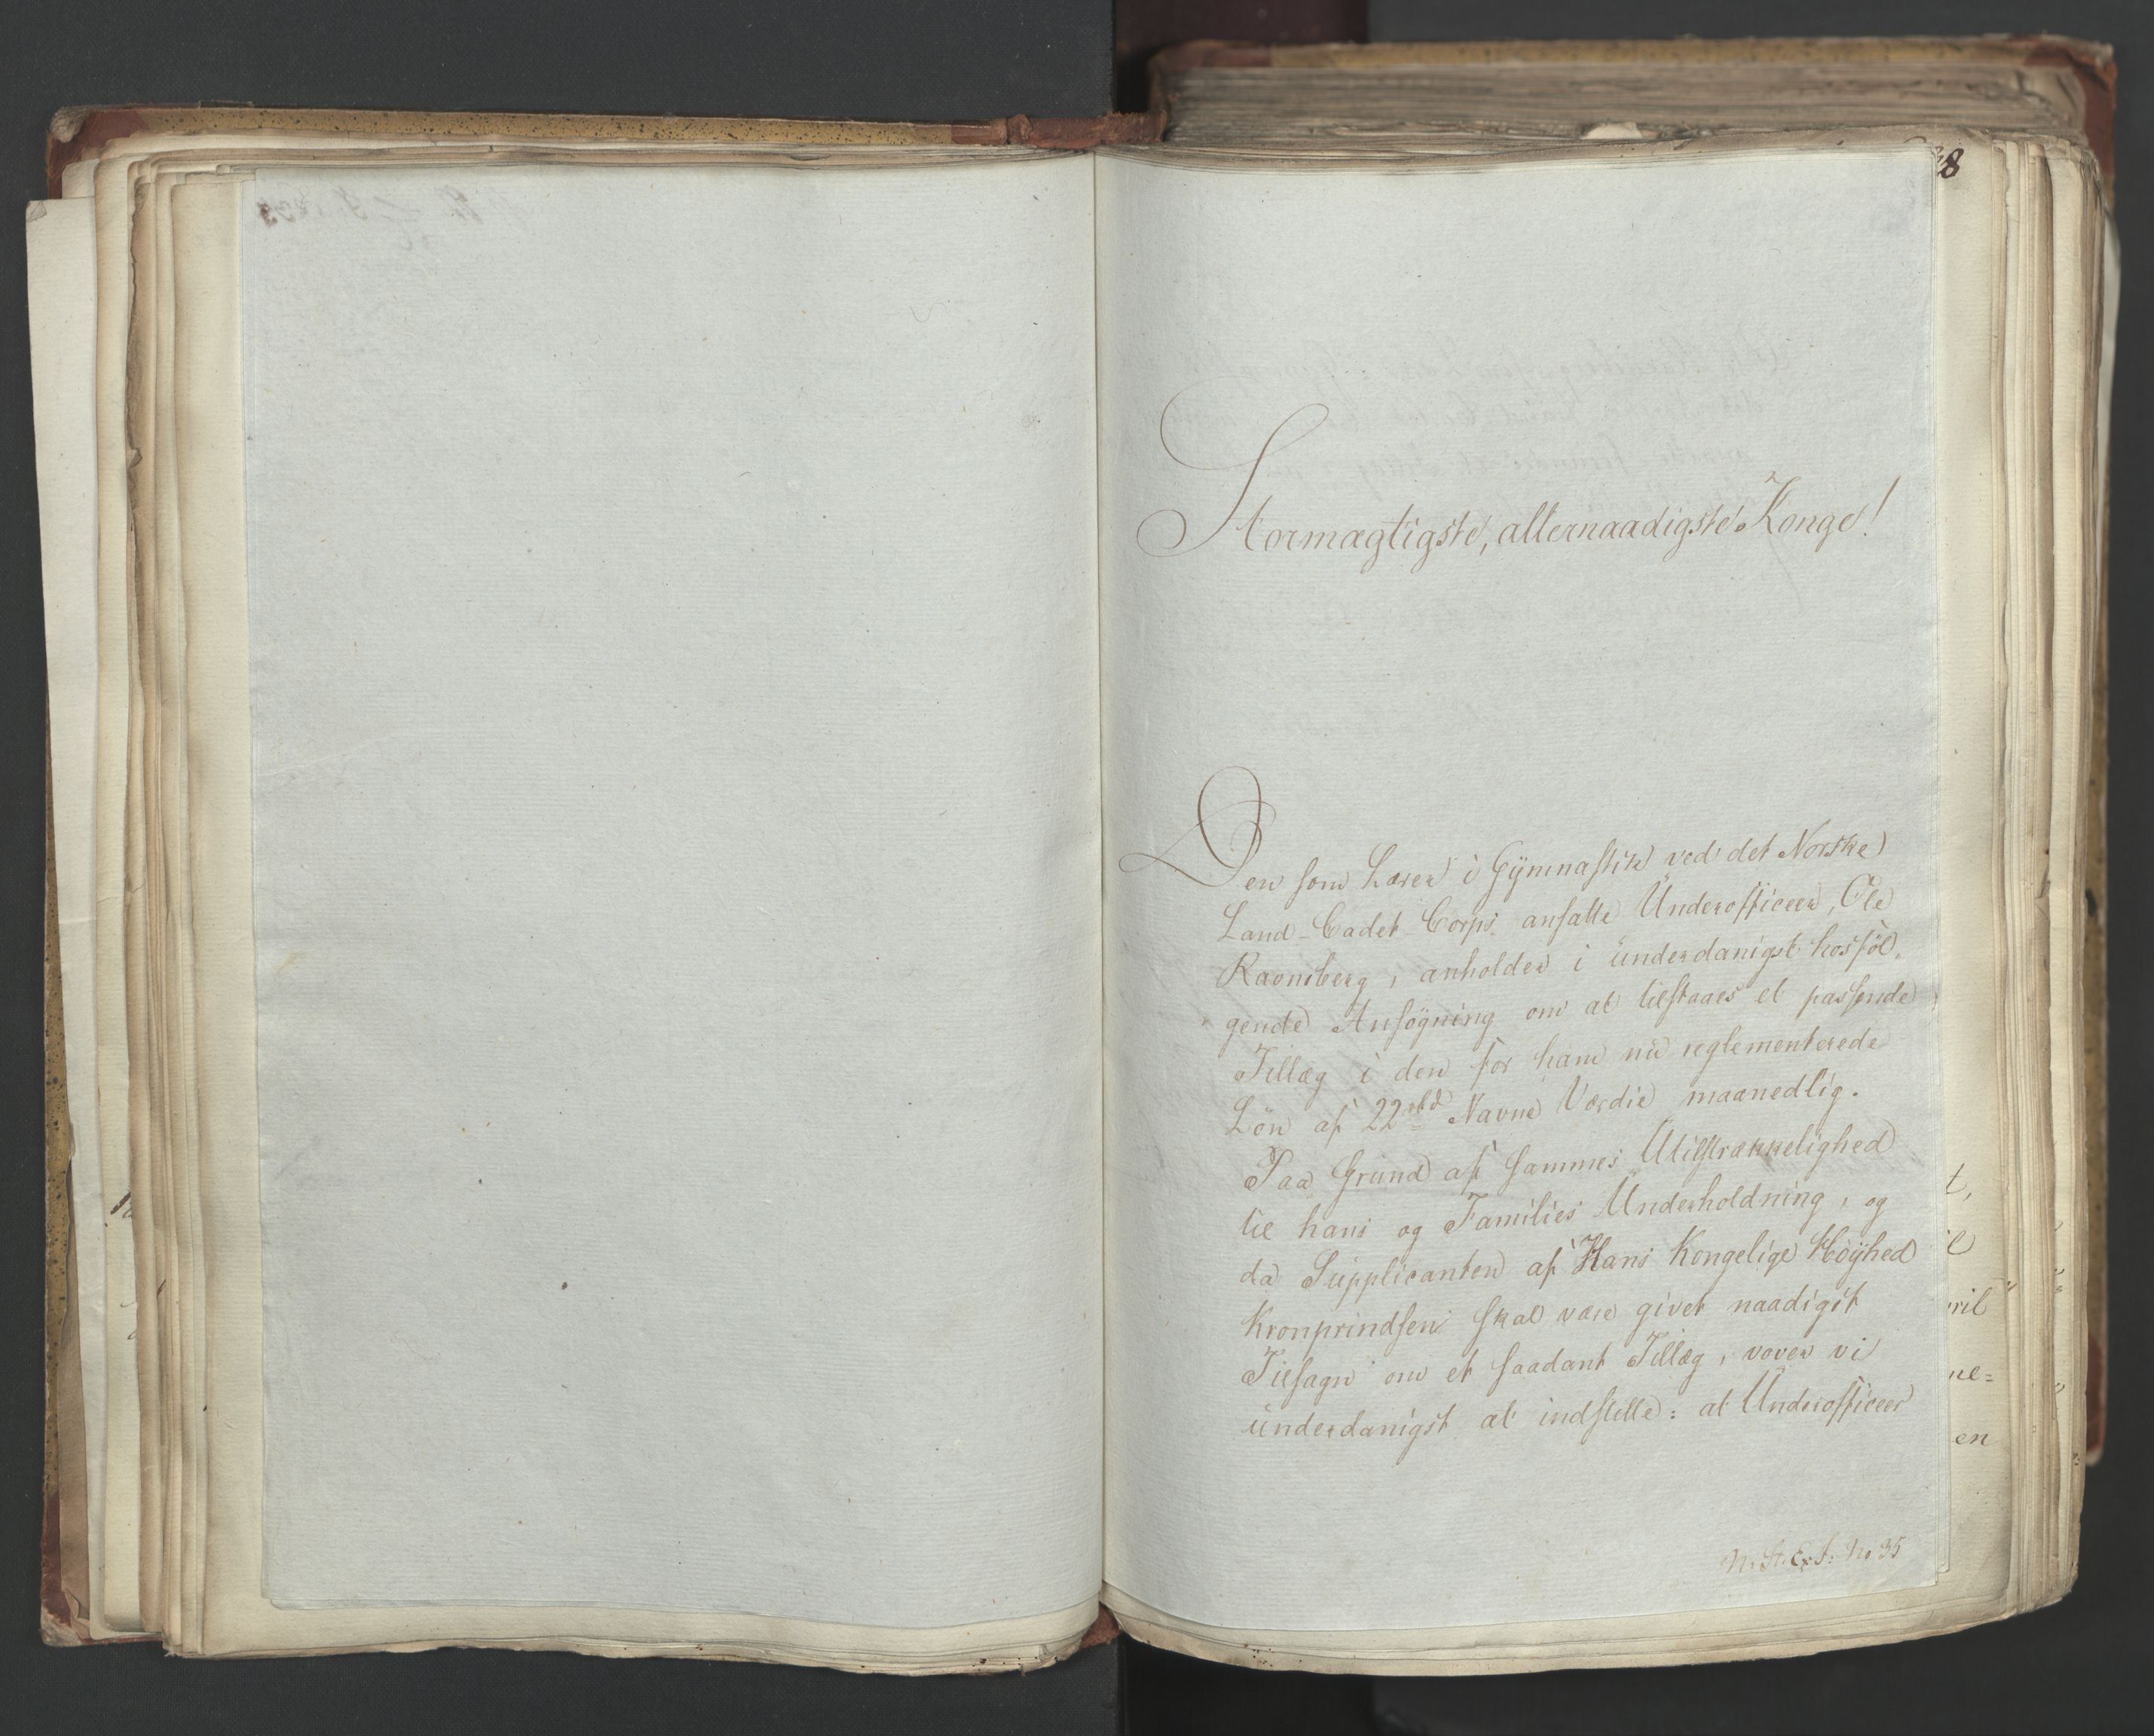 Stormægtigste, allernaadigste Konge!
Den som Lærer i Gÿmnastik ved det Norske
Land-Cadet Corps ansatte Underofficeer, Ole
Ravnsberg, anholder i underdanigst hosföl-
gende Ansögning om at tilstaaes et passende
Tillæg i den for ham nu reglementerede
Lön af 22 rbd Navne Værdie maanedlig.
Paa Grund af sammes Utilstrækkelighed
til hans og Families Underholdning, og
da Supplicanten af Hans Kongelige Höÿhed
Kronprindsen skal være givet naadigst
Tilsagn om et saadant Tillæg, vover vi
underdanigst at indstille: at Underofficeer
N. St. Ex. No 35